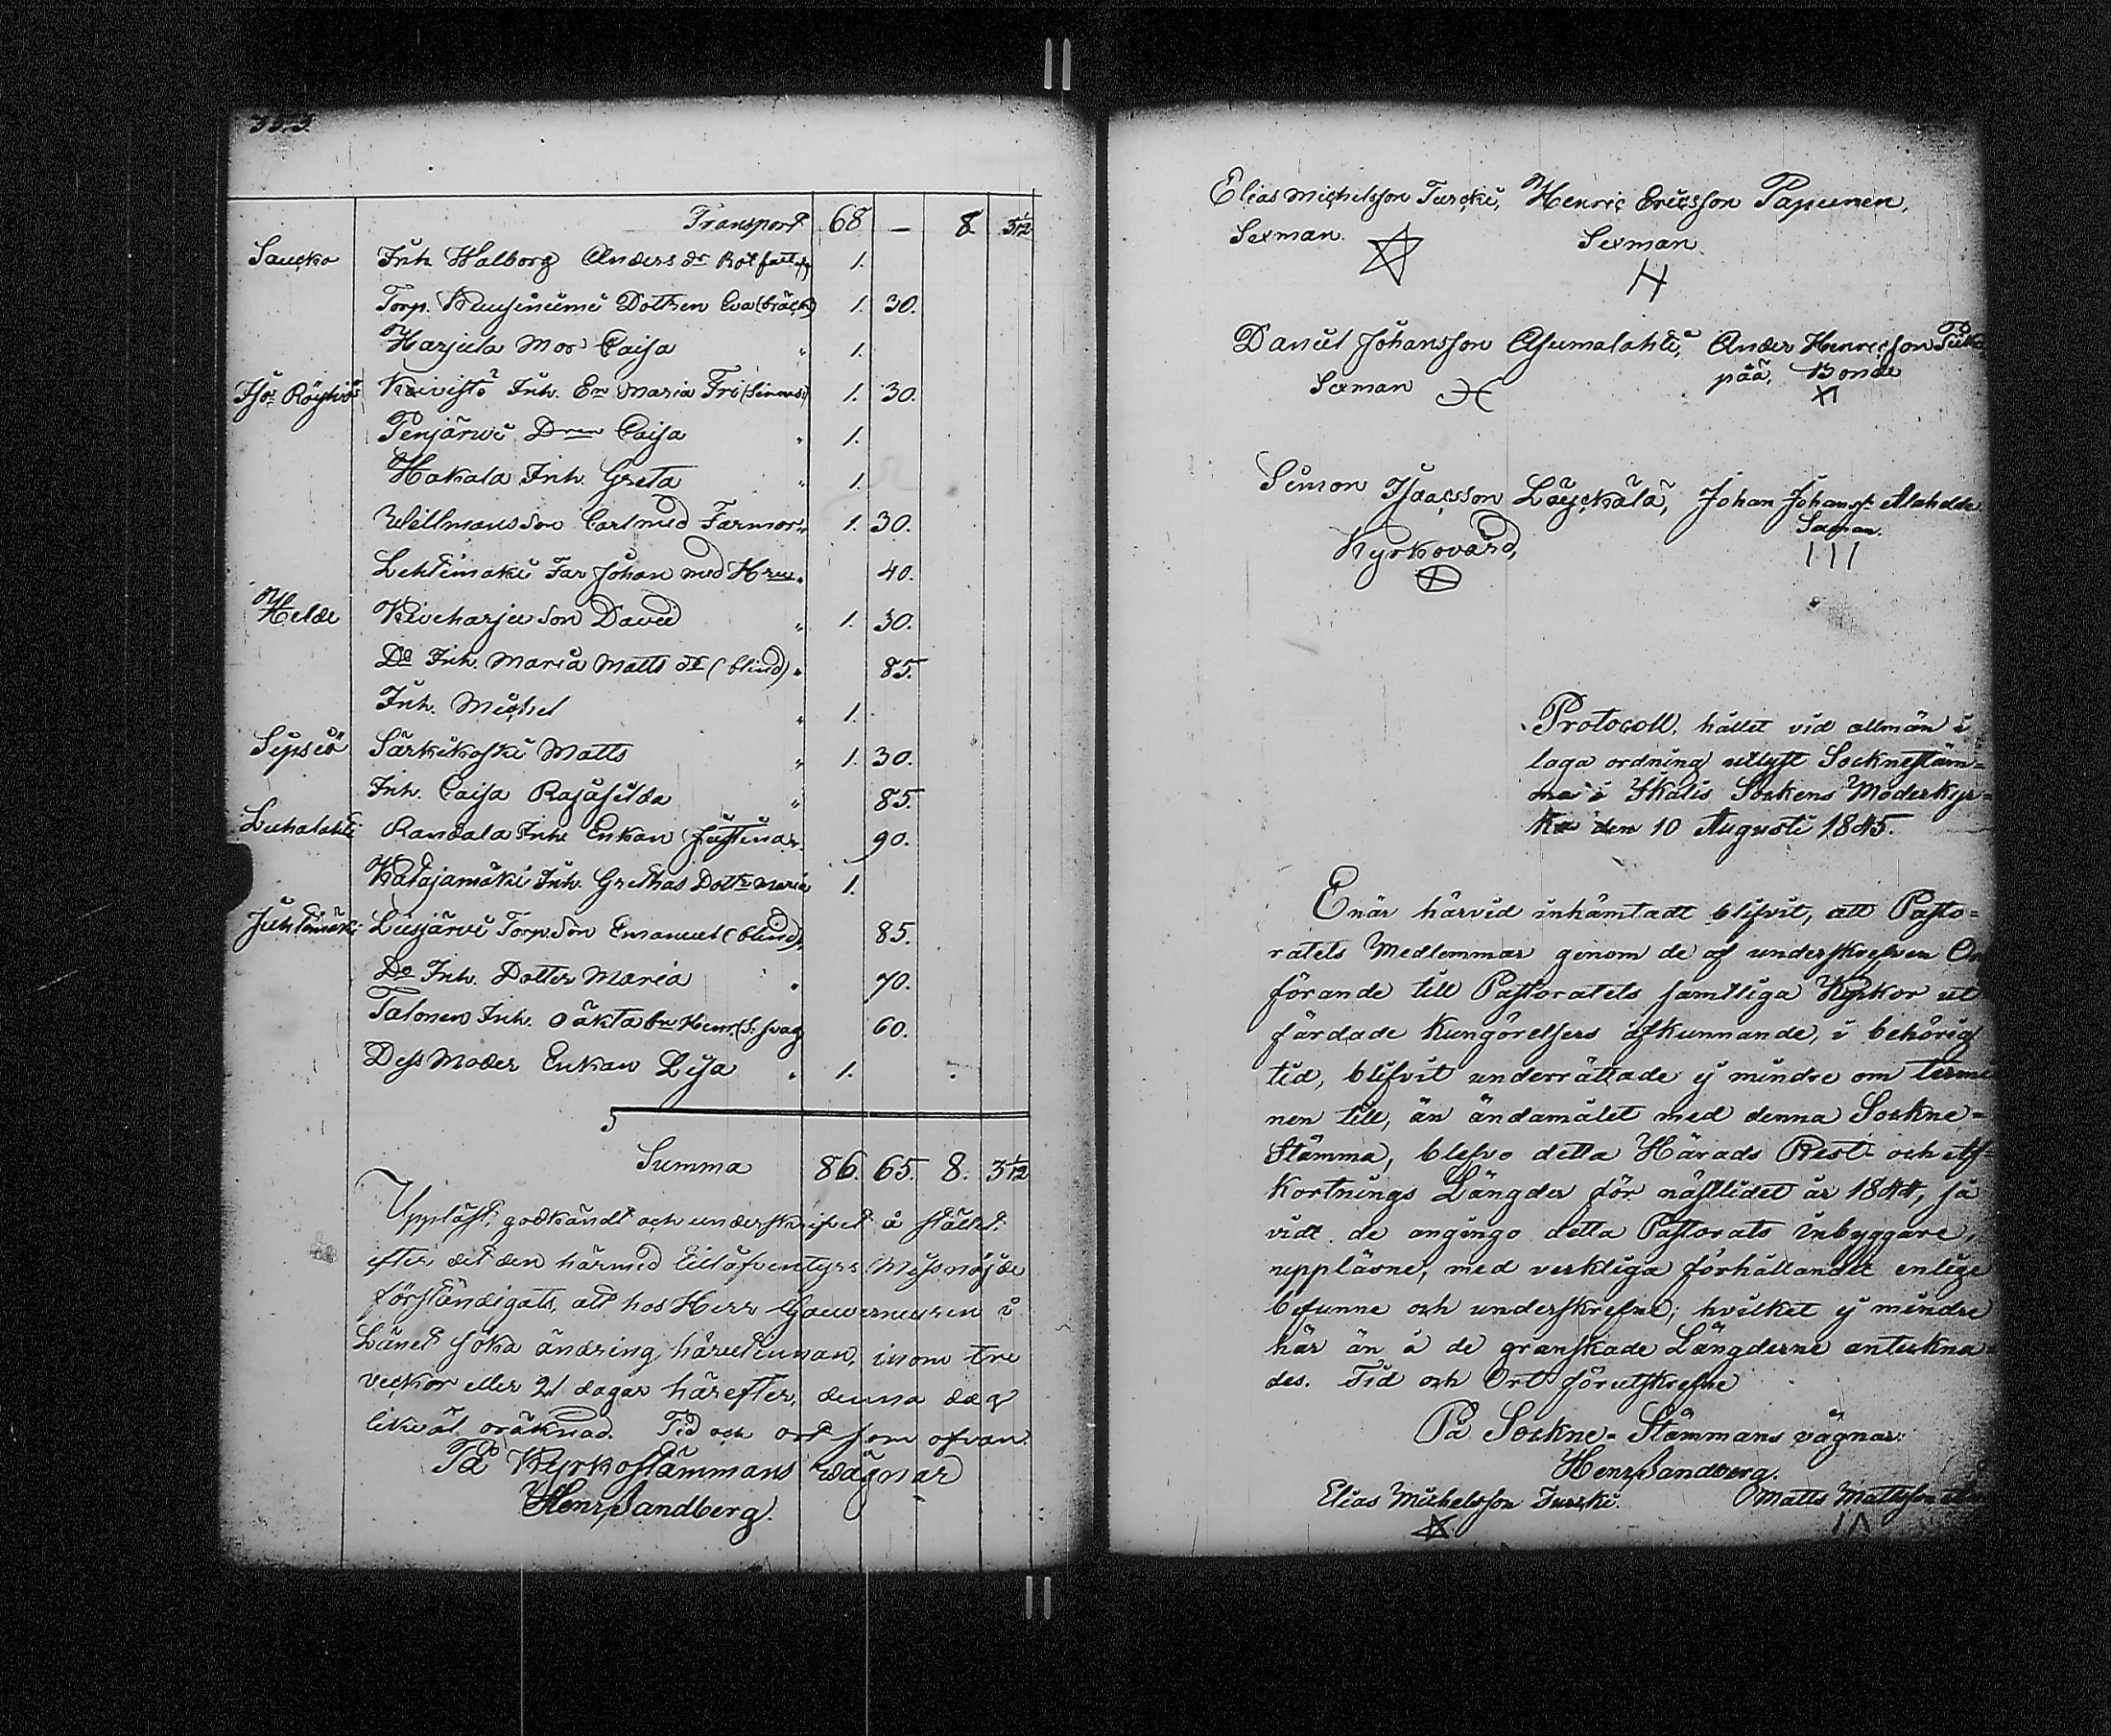 353.
Transport 68 — 8 3 1/12
Saucko Inh Walborg Anders dr Rot fattig 1.
Torp. Kuusiniemi Dottren Eva (bräckl) 1. 30.
Harjula Mor Caisa " 1.
Iso Röyhiö Koivisto Inh. En Maria Fri (Sinnessl) 1. 30.
Penjärwi Dren Caisa " 1.
Hakala Inh. Greta " 1.
Willmans Son Carl med Farmor " 1. 30.
Lehtimäki Far Johan med Hru " 40.
Kiviharju Son David " 1. 30.
Do Inh. Maria Matts dr (blind) " 85.
Inh. Michel " 1.
Sipsiö Särkikoski Matts " 1. 30.
Inh. Caisa Rajasilda " 85.
Luhalahti Randala Inh. Enkan Justina " 90.
Katajamäki Inh. Grethas Dottr Maria 1.
Juhtimäki Liesjärvi Torp. Son Emanuel (blind) 85.
Do Inh. Dotter Maria " 70.
Talonen Inh. Oäkta Henr. (S: svag 60.
Dess Moder Enkan Lisa " 1.
Summa 86. 65. 8. 3 1/12
Uppläst, godkändt och underskrifvet å stället
efter det den härmed till äfventyrs missnöjde
förständigats, att hos Herr Gouverneuren i
Länet söka ändring härutinnan, inom tre
veckor eller 21 dagar härefter, denna dag
likväl oräknad. Tid och ort som ofvan.
På Kyrkostämmans wägnar
Henr. Sandberg.
Elias Michelsson Turcki, Henric Ericsson Papunen,
Sexman. Sexman
H
Daniel Johansson Asumalahti, Anders Henricsson
Sexman pää, Bonde
Simon Isaacsson Läyckälä, Johan Johanss. Alahelde
Kyrkovärd, Sexman.
III
Protocoll, hållet vid allmän i
laga ordning utlyst Socknestäm-
ma i Ikalis Sockens Moderkyr-
ka den 10 Augusti 1845.
Enär härvid inhämtadt blifvit, att Pasto-
ratets Medlemmar genom de af underskrefven Ord
förande till Pastoratets samtliga Kyrkor ut
färdade Kungörelsers afkunnande, i behörig
tid, blifvit underrättade ej mindre om termi
nen till, än ändamålet med denna Sockne-
Stämma, blefvo detta Härads Rest- och Af-
kortnings Längder för nästlidet år 1844, så
vidt de angingo detta Pastorats inbyggare,
uppläsne, med verkliga förhållandet enlige
befunne och underskrefne; hvilket ej mindre
här än å de granskade Längderne anteckna-
des. Tid och Ort förutskrefne
På Sockne-Stämmans vägnar:
Henr. Sandberg.
Elias Michelsson Turcki. Matts Mattsson